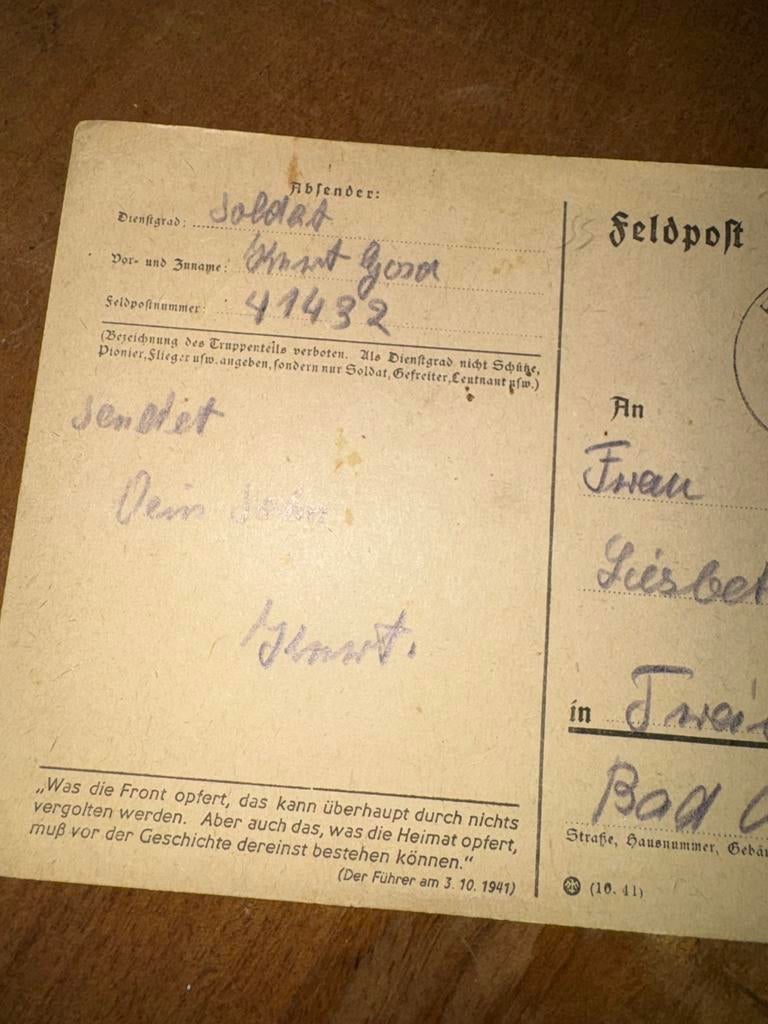 Absender:
Dienstgrad: Soldat
Vor- und Zuname: Kurt
Feldpostnummer: 41432
(Bezeichnung des Truppenteils verboten. Als Dienstgrad nicht Schütze,
Pionier, Flieger usw. angeben, sondern nur Soldat, Gefreiter, Leutnant usw.)
sendet
Dein Sohn
Kurt.
„Was die Front opfert, das kann überhaupt durch nichts
vergolten werden. Aber auch das, was die Heimat opfert,
muß vor der Geschichte dereinst bestehen können.“
(Der Führer am 3. 10. 1941)
Feldpost
An
Frau
in
Bad
Straße, Hausnummer,
(10. 41)